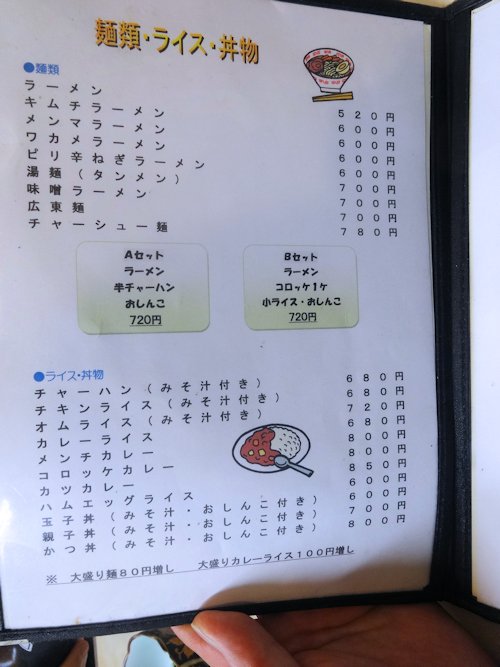 麺類・ライス・丼物
●麺類
ラーメン 520円
キムチラーメン 600円
メンマラーメン 600円
ワカメラーメン 600円
ピリ辛ねぎラーメン 600円
湯麺(タンメン) 700円
味噌ラーメン 700円
広東麺 700円
チャーシュー麺 780円
Aセット
ラーメン
半チャーハン
おしんこ
720円
Bセット
ラーメン
コロッケ1ケ
小ライス・おしんこ
720円
●ライス・丼物
チャーハン(みそ汁付き) 680円
チキンライス(みそ汁付き) 680円
オムライス(みそ汁付き) 720円
カレーライス 680円
メンチカレー 800円
コロッケカレー 800円
カツカレー 850円
ハムエッグライス 600円
玉子丼(みそ汁・おしんこ付き) 600円
親子丼(みそ汁・おしんこ付き) 700円
かつ丼(みそ汁・おしんこ付き) 800円
※ 大盛り麺80円増し 大盛りカレーライス100円増し